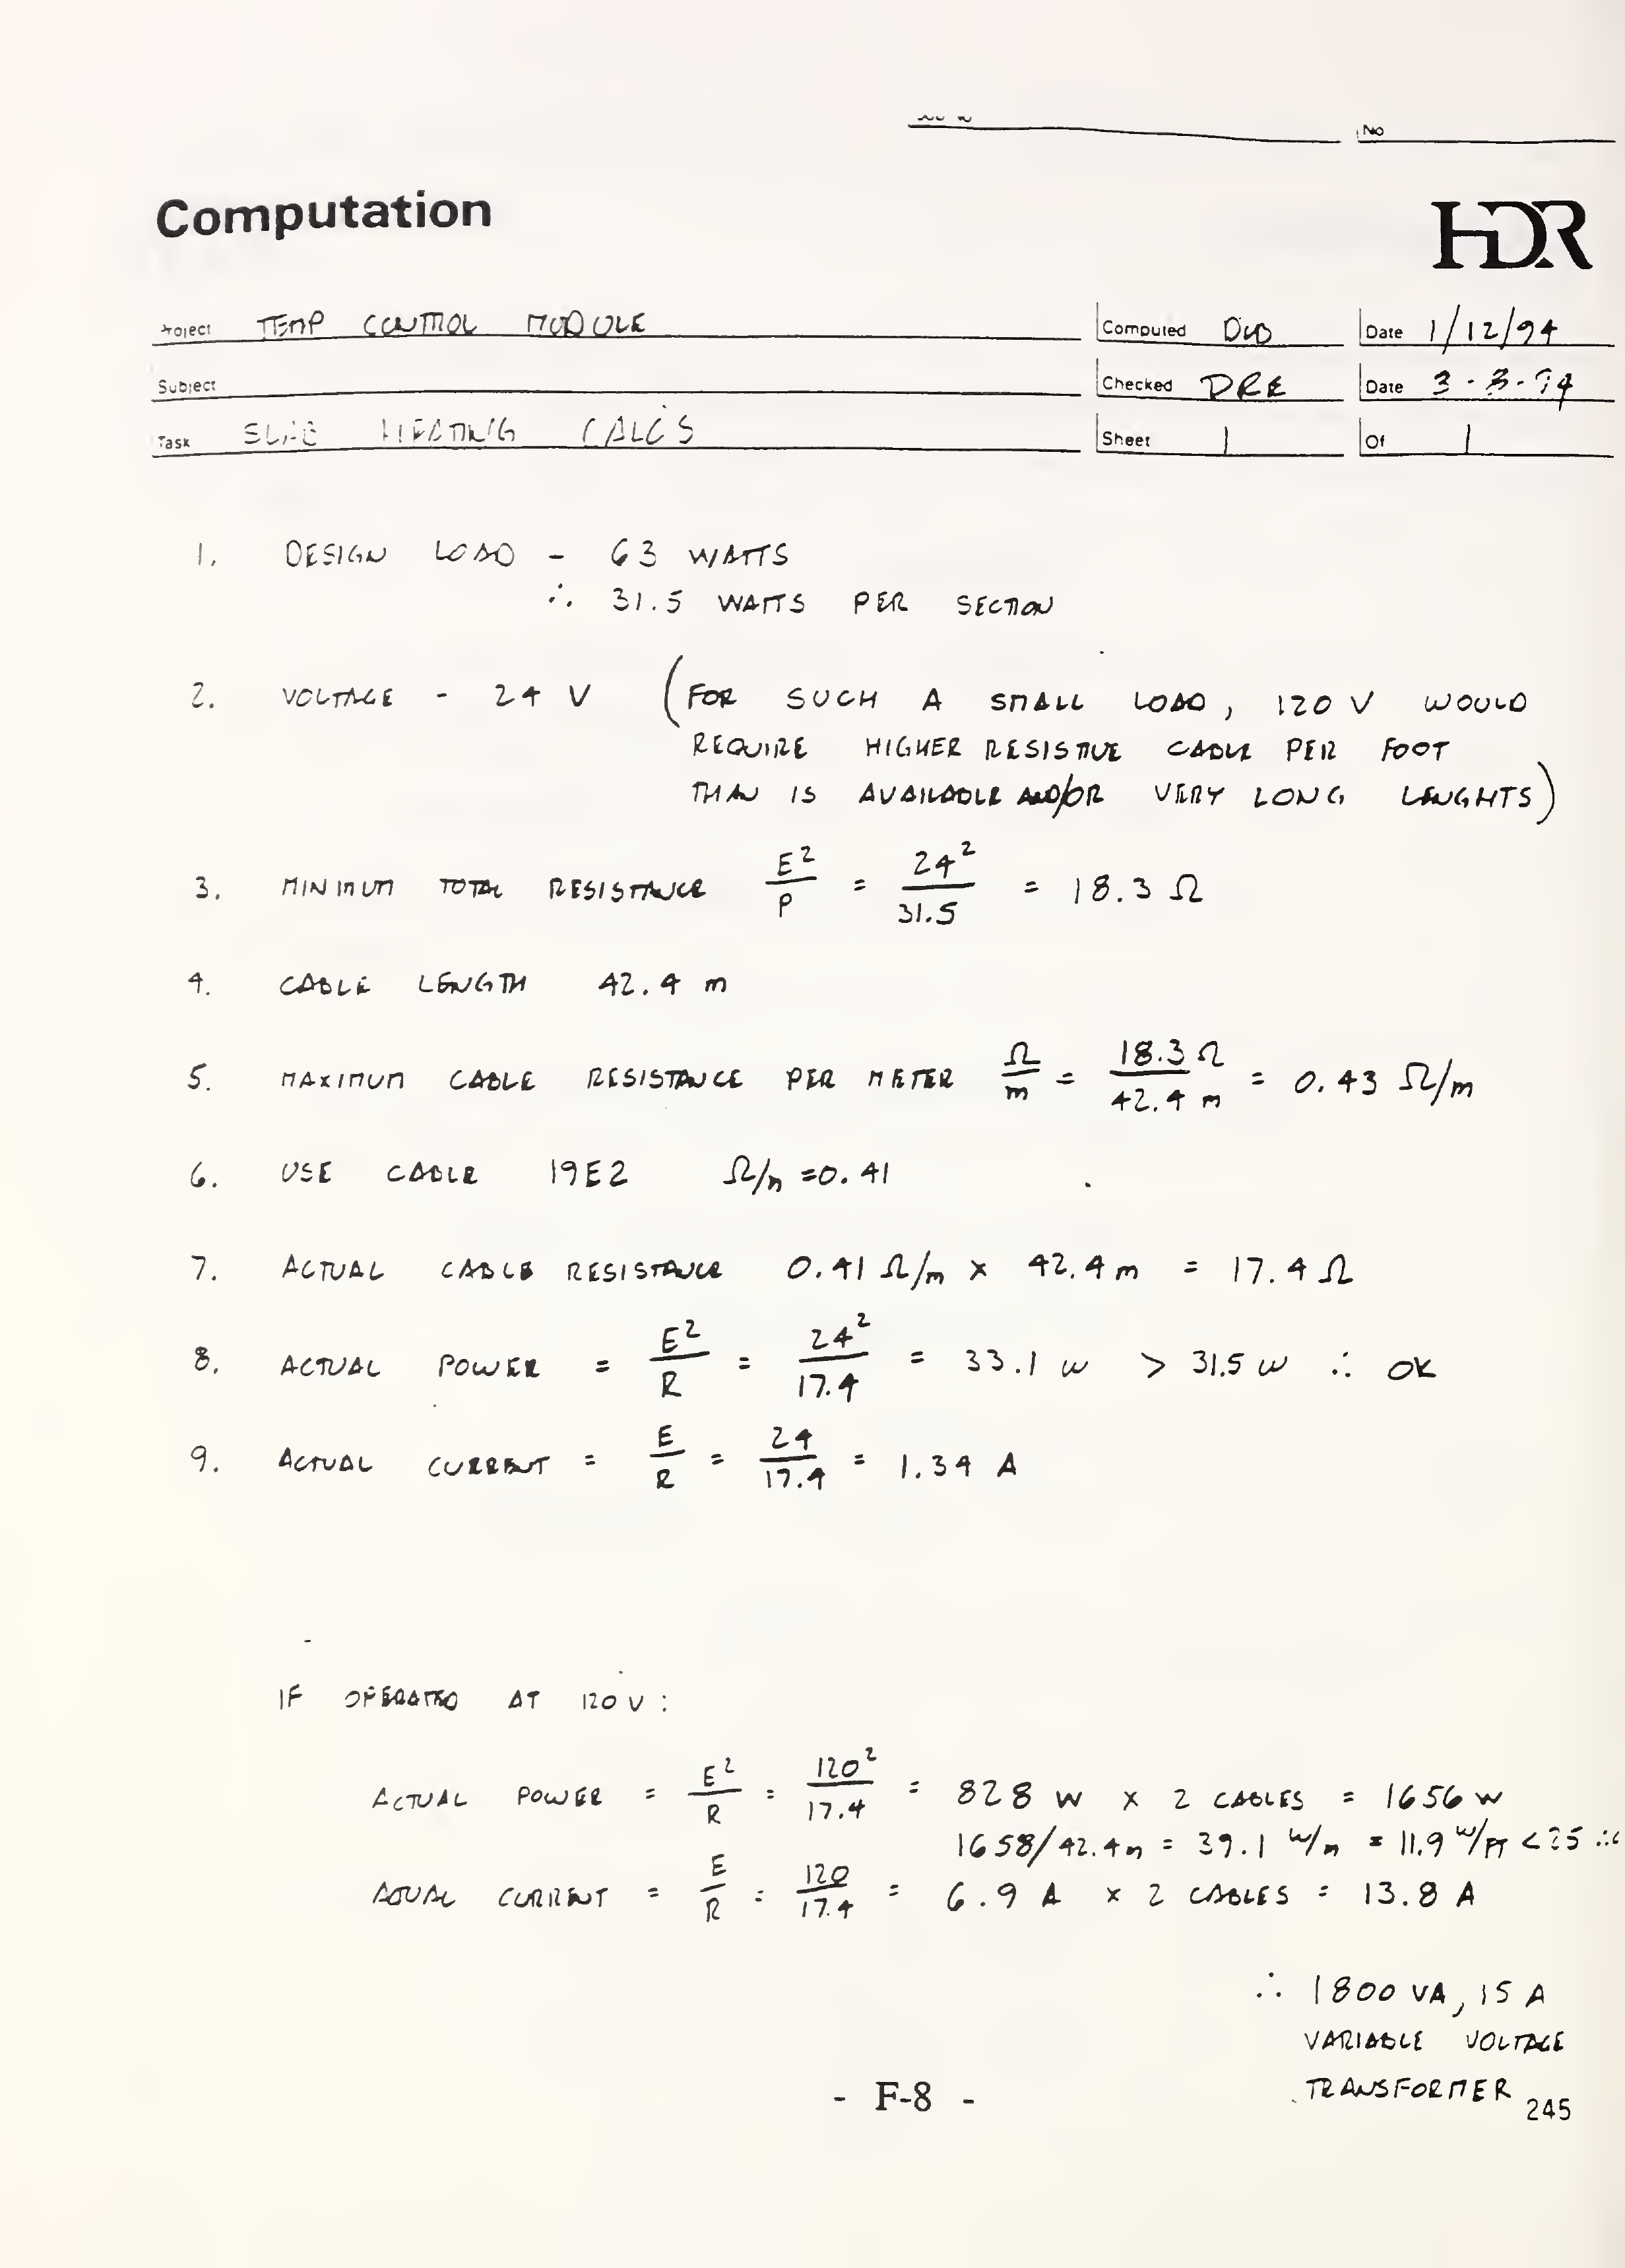 No
Computation
HDR
Project TEMP CONTROL MODULE
Computed DWD Date 1/12/94
Subject
Checked DRE Date 3-3-94
Task SLAB HEATING CALCS
Sheet 1 Of 1
1. DESIGN LOAD - 63 WATTS
∴ 31.5 WATTS PER SECTION
2. VOLTAGE - 24 V (FOR SUCH A SMALL LOAD, 120 V WOULD
REQUIRE HIGHER RESISTIVE CABLE PER FOOT
THAN IS AVAILABLE AND/OR VERY LONG LENGHTS)
3. MINIMUM TOTAL RESISTANCE E²/P = 24²/31.5 = 18.3 Ω
4. CABLE LENGTH 42.4 m
5. MAXIMUM CABLE RESISTANCE PER METER Ω/m = 18.3 Ω/42.4 m = 0.43 Ω/m
6. USE CABLE 19E2 Ω/m = 0.41
7. ACTUAL CABLE RESISTANCE 0.41 Ω/m x 42.4 m = 17.4 Ω
8. ACTUAL POWER = E²/R = 24²/17.4 = 33.1 W > 31.5 W ∴ OK
9. ACTUAL CURRENT = E/R = 24/17.4 = 1.34 A
IF OPERATED AT 120 V:
ACTUAL POWER = E²/R = 120²/17.4 = 828 W x 2 CABLES = 1656 W
1658/42.4m = 39.1 W/m = 11.9 W/FT < 25 ∴
ACTUAL CURRENT = E/R = 120/17.4 = 6.9 A x 2 CABLES = 13.8 A
∴ 1800 VA, 15 A
VARIABLE VOLTAGE
TRANSFORMER
- F-8 -
245